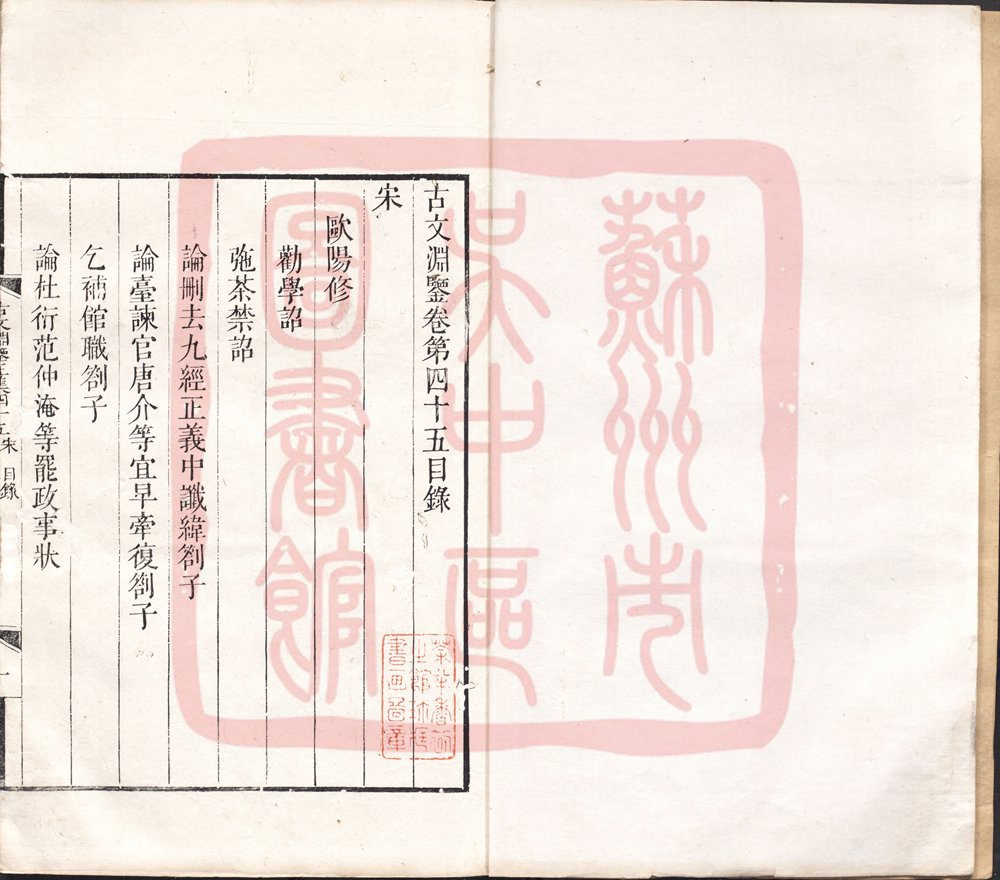 古文淵鑒卷第四十五目錄
宋
歐陽修
勸學詔
弛茶禁詔
論刪去九經正義中讖緯劄子
論臺諫官唐介等宜早牽復劄子
乞補館職劄子
論杜衍范仲淹等罷政事狀
古文淵鑒
宋 目錄
一
蘇州市
吳中區
圖書館
書畫圖章